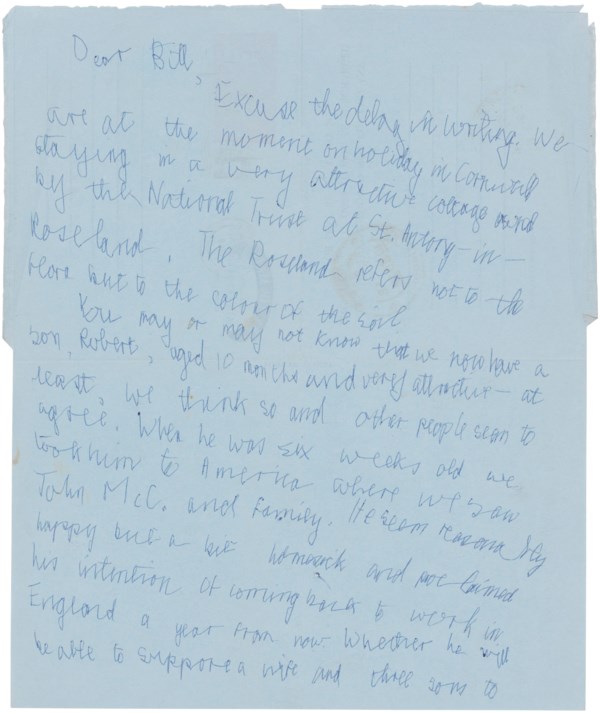 Dear Bill,
Excuse the delay in writing. We
are at the moment on holiday in Cornwall
staying in a very attractive cottage owned
by the National Trust at St. Antony-in-
Roseland. The Roseland refers not to the
flora but to the colour of the soil
You may or may not know that we now have a
son, Robert, aged 10 months and very attractive — at
least, we think so and other people seem to
agree. When he was six weeks old we
took him to America where we saw
John McC. and family. He seem reasonably
happy but a bit homesick and proclaimed
his intention of coming back to work in
England a year from now. Whether he will
be able to support a wife and three sons to